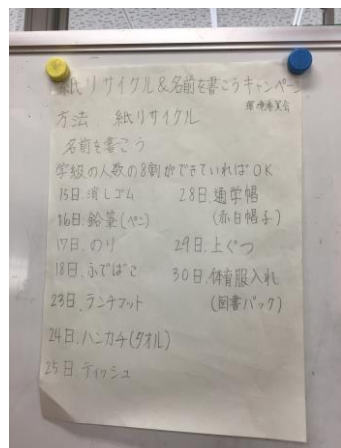 紙リサイクル&名前を書こうキャンペーン
環境委員会
方法 紙リサイクル
名前を書こう
学級の人数の8割ができていればOK
15日.消しゴム
16日.鉛筆(ペン)
17日.のり
18日.ふでばこ
23日.ランチマット
24日.ハンカチ(タオル)
25日.ティッシュ
28日.通学帽
(赤白帽子)
29日.上ぐつ
30日.体育服入れ
(図書バック)